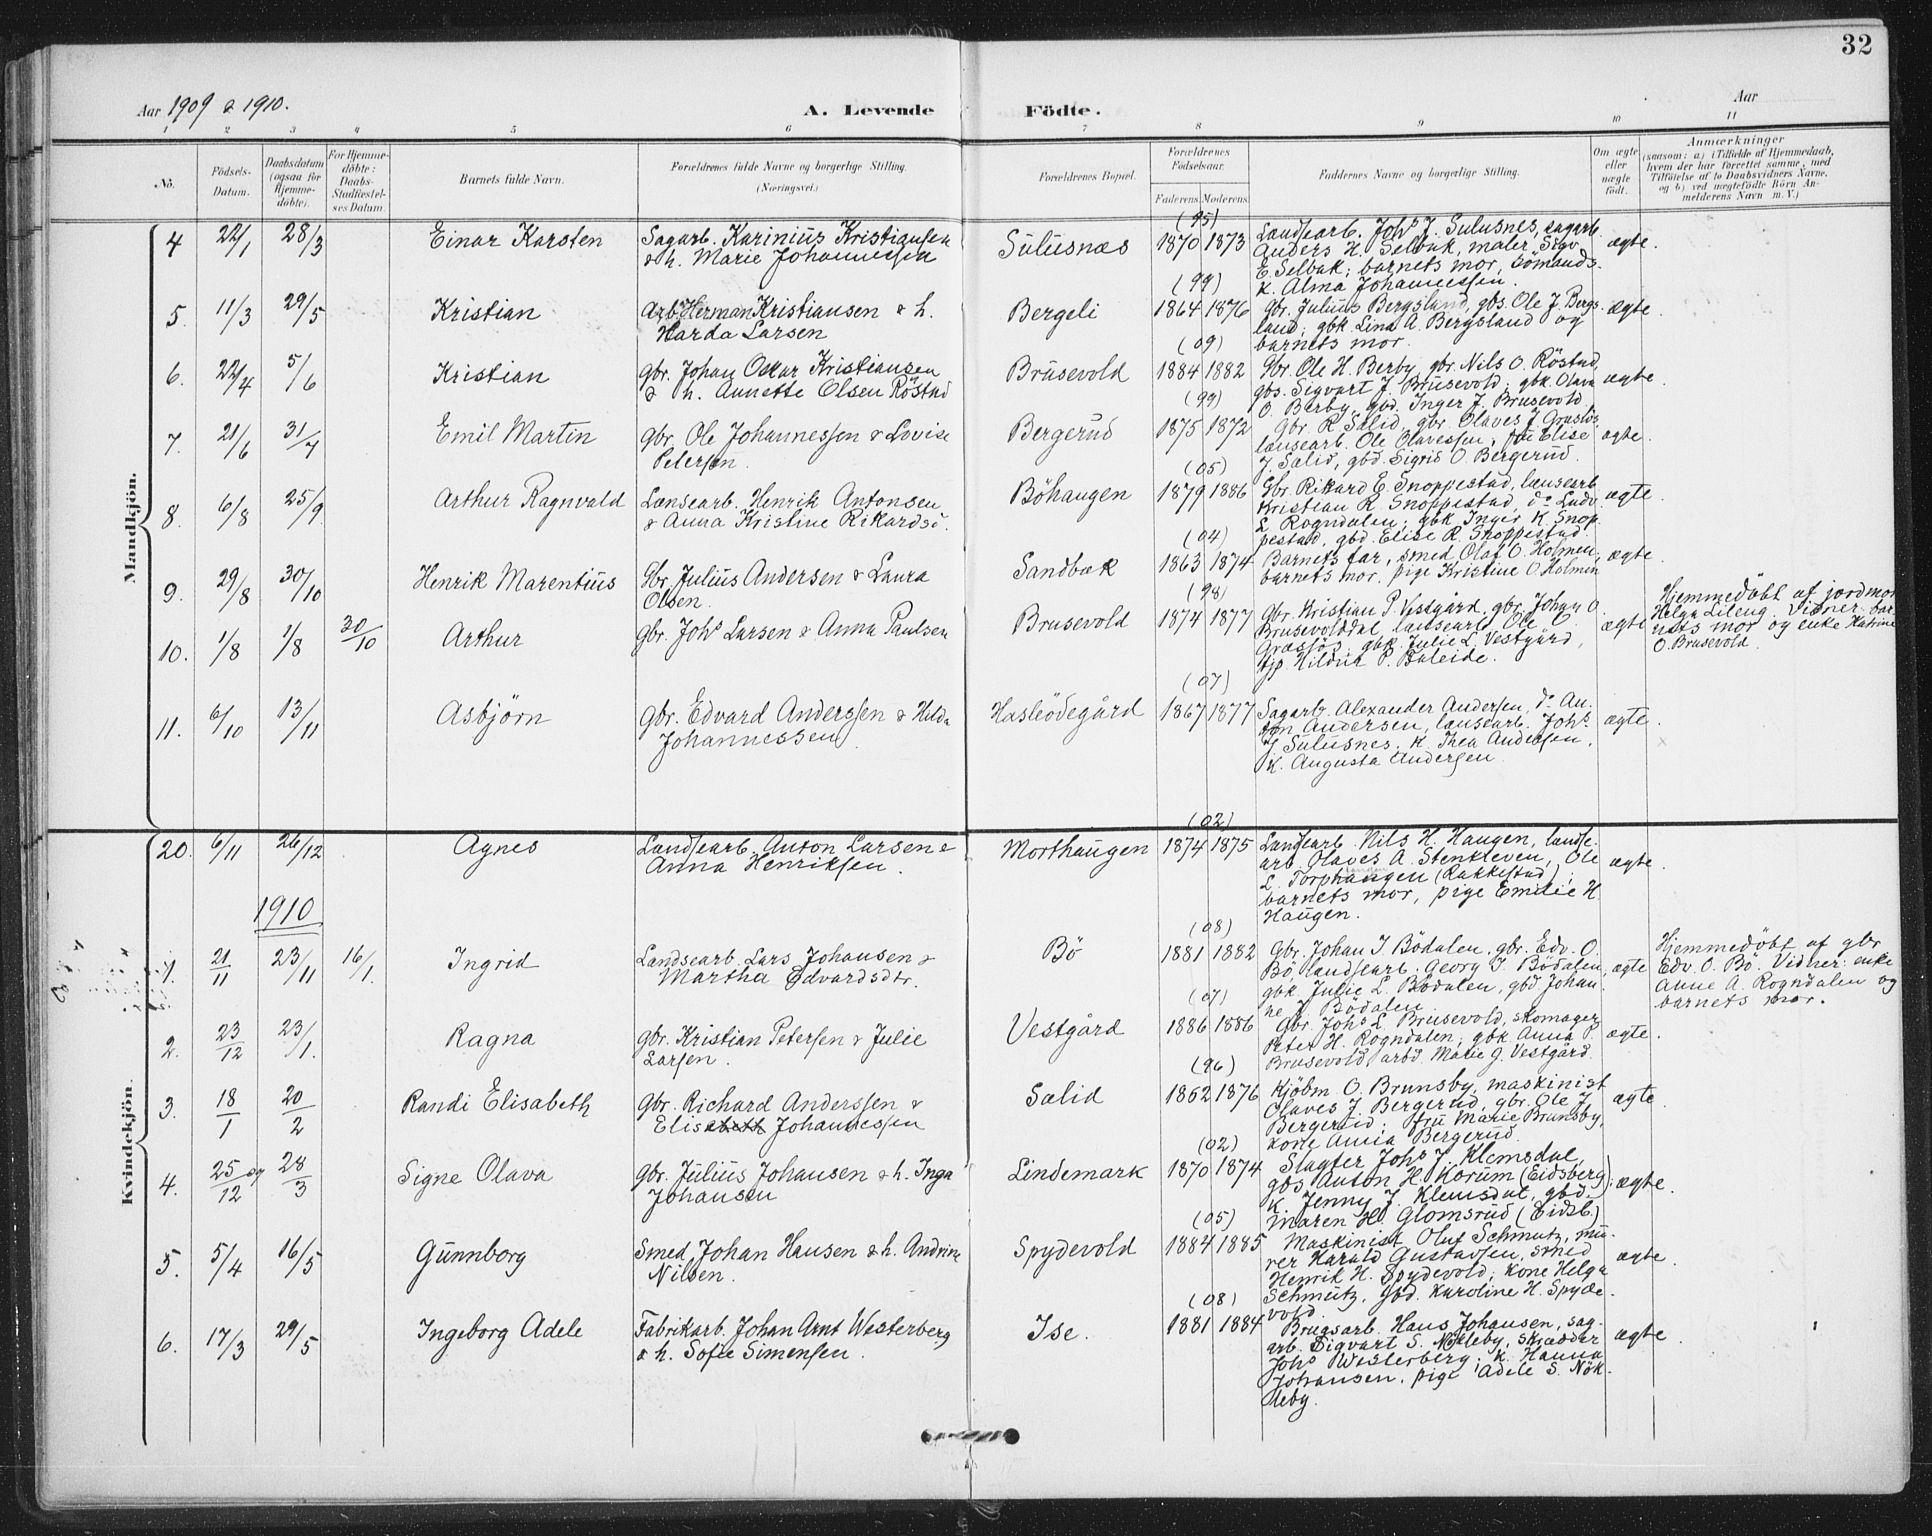 32
Aar 1909 & 1910.
A. Levende Födte.
Aar
1 2 3 4 5 6 7 8 9 10 11
No.
Födsels-Datum.
Daabsdatum (ogsaa for Hjemme-döbte).
For Hjemme-döbte: Daabs-Stadfæstel-ses Datum.
Barnets fulde Navn.
Forældrenes fulde Navne og borgerlige Stilling. (Næringsvei.)
Forældrenes Bopæl.
Forældrenes Födselsaar.
Faderens. Moderens.
Faddernes Navne og borgerlige Stilling.
Om ægte eller uægte födt.
Anmærkninger
(saasom: a) i Tilfælde af Hjemmedaab,
hvem der har forrettet samme, med
Tilföielse af to Daabsvidners Navne.
og b) ved uægtefödte Börn An-
melderens Navn m. V.)
Mandkjön.
4 22/1 28/3 Einar Karsten
Sagarb. Karinius Kristiansen
& h. Marie Johannessen
Sulusnæs
(95)
1870 1873
Landsearb. Johs J. Sulusnes, sagarb.
Anders H. Selbak, maler Sigv.
E. Selbak; barnets mor, sömands-
k. Alma Johannessen.
ægte.
5. 11/3 29/5 Kristian
Arb. Herman Kristiansen & h.
Harda Larsen
Bergeli
(99)
1864 1876
Gbr. Julius Bergsland, gbs. Ole J. Bergs-
land; gbk. Lina A. Bergsland og
barnets mor.
ægte.
6. 22/4 5/6 Kristian
gbr. Johan Oskar Kristiansen
& h. Annette Olsen Röstad
Brusevold
(09)
1884 1882
Gbr. Ole H. Berby, gbr. Nils O. Röstad,
gbs. Sigvart J. Brusevold; gbk. Olava
O. Berby, gbd. Inger J. Brusevold
ægte.
7. 21/6 31/7 Emil Martin
gbr. Ole Johannessen & Lovise
Petersen.
Bergerud
(99)
1875 1872
Gbr. R. Sælid, gbr. Olaves J. Grasjös
lansearb. Ole Olavessen; fru Elise
J. Sælid, gbd. Sigrid O. Bergerud.
ægte.
8. 6/8 25/9 Arthur Ragnvald
Lansearb. Henrik Antonsen
& Anna Kristine Rikardsd.
Böhaugen
(05)
1879 1886
Gbr. Rikard E. Snoppestad, lansearb
Kristian R. Snoppestad, do Ludv.
L. Rogndalen; gbk Inger K. Snop-
pestad, gbd. Elise R. Snoppestad.
ægte.
9. 29/8 30/10 Henrik Marentius
Gbr. Julius Andersen & Laura
Olsen.
Sandbæk
(04)
1863 1874
Barnets far, smed Olaf O. Holmen,
barnets mor, pige Kristine O. Holmen
ægte.
10. 1/8 1/8 30/10 Arthur
gbr. Johs Larsen & Anna Paulsen
Brusevold
(98)
1874 1877
Gbr. Kristian P. Vestgård, gbr. Johan O.
Brusevolddal, lansearb. Ole O.
Grasjös; gbk. Julie L. Vestgård,
tjp Hilda P. Buleide.
ægte
Hjemmedöbt af jordmor
Helga Lileng. Vidner: bar-
nets mor og enke Katrine
O. Brusevold.
11. 6/10 13/11 Asbjörn
gbr. Edvard Anderssen & Hilda
Johannessen
Haslerödegård
(07)
1867 1877
Sagarb. Alexander Andersen, do An-
ton Andersen, lansearb. Johs
J. Sulusnes, k. Thea Andersen,
k. Augusta Andersen.
ægte.
Kvindekjön.
20. 6/11 26/12 Agnes
Landsearb. Anton Larsen &
Anna Henriksen.
Morthaugen
(02)
1874 1875
Landsearb. Nils H. Haugen, landse-
arb. Olaves A. Stenkleven, Ole
L. Torphaugen (Rakkestad);
barnets mor, pige Emilie H.
Haugen.
ægte.
1910
1. 21/11 23/11 16/1. Ingrid
Landsearb. Lars Johansen &
Martha Edvardsdtr.
Bö
(08)
1881 1882
Gbr. Johan J Bödalen, gbr. Edv. O.
Bö, landsearb. Georg J. Bödalen,
gbk Julie L. Bödalen, gbd Johan-
ne J. Bödalen
ægte
Hjemmedöbt af gbr.
Edv. O. Bö. Vidner: enke
Anne A. Rogndalen og
barnets mor.
2. 23/12 23/1. Ragna
gbr. Kristian Petersen & Julie
Larsen.
Vestgård
(07)
1886 1886
Gbr. Johs L. Brusevold, skomager
Peter H. Rogndalen; gbk Anna P.
Brusevold, arbd. Marie J. Vestgård.
ægte.
3. 18/1 20/2 Randi Elisabeth
Gbr. Richard Anderssen &
Elise Johannessen
Sælid
(96)
1862 1876
Kjöbm O. Brunsby, maskinist
Olaves J. Bergerud, gbr. Ole J.
Bergerud; fru Marie Brunsby,
kone Anna Bergerud.
ægte.
4. 25/12 09 28/3 Signe Olava
Gbr. Julius Johansen & h. Inga
Johansen
Lindemark
(02)
1870 1874
Slagter Johs J. Klemsdal,
gbs Anton H. Horum (Eidsberg);
k. Jenny J. Klemsdal, gbd.
Maren H. Glomsrud (Eidsb.)
ægte.
5. 5/4 16/5 Gunnborg
Smed Johan Hansen & h. Andrine
Nilsen.
Spydevold
(05)
1884 1885
Maskinist Oluf Schmutz, mu-
rer Harald Gustavsen, smed
Henrik H. Spydevold; kone Helga
Schmutz, gbd. Karoline H. Spyde-
vold
ægte.
6. 17/3 29/5 Ingeborg Adele
Fabrikarb. Johan Arnt Westerberg
& h. Sofie Simensen.
Ise.
(08)
1881 1884
Brugsarb. Hans Johansen, sag-
arb. Sigvart S. Nökleby, skrædder
Johs Westerberg; k. Hanna
Johansen, pige Adele S. Nök-
leby.
ægte.